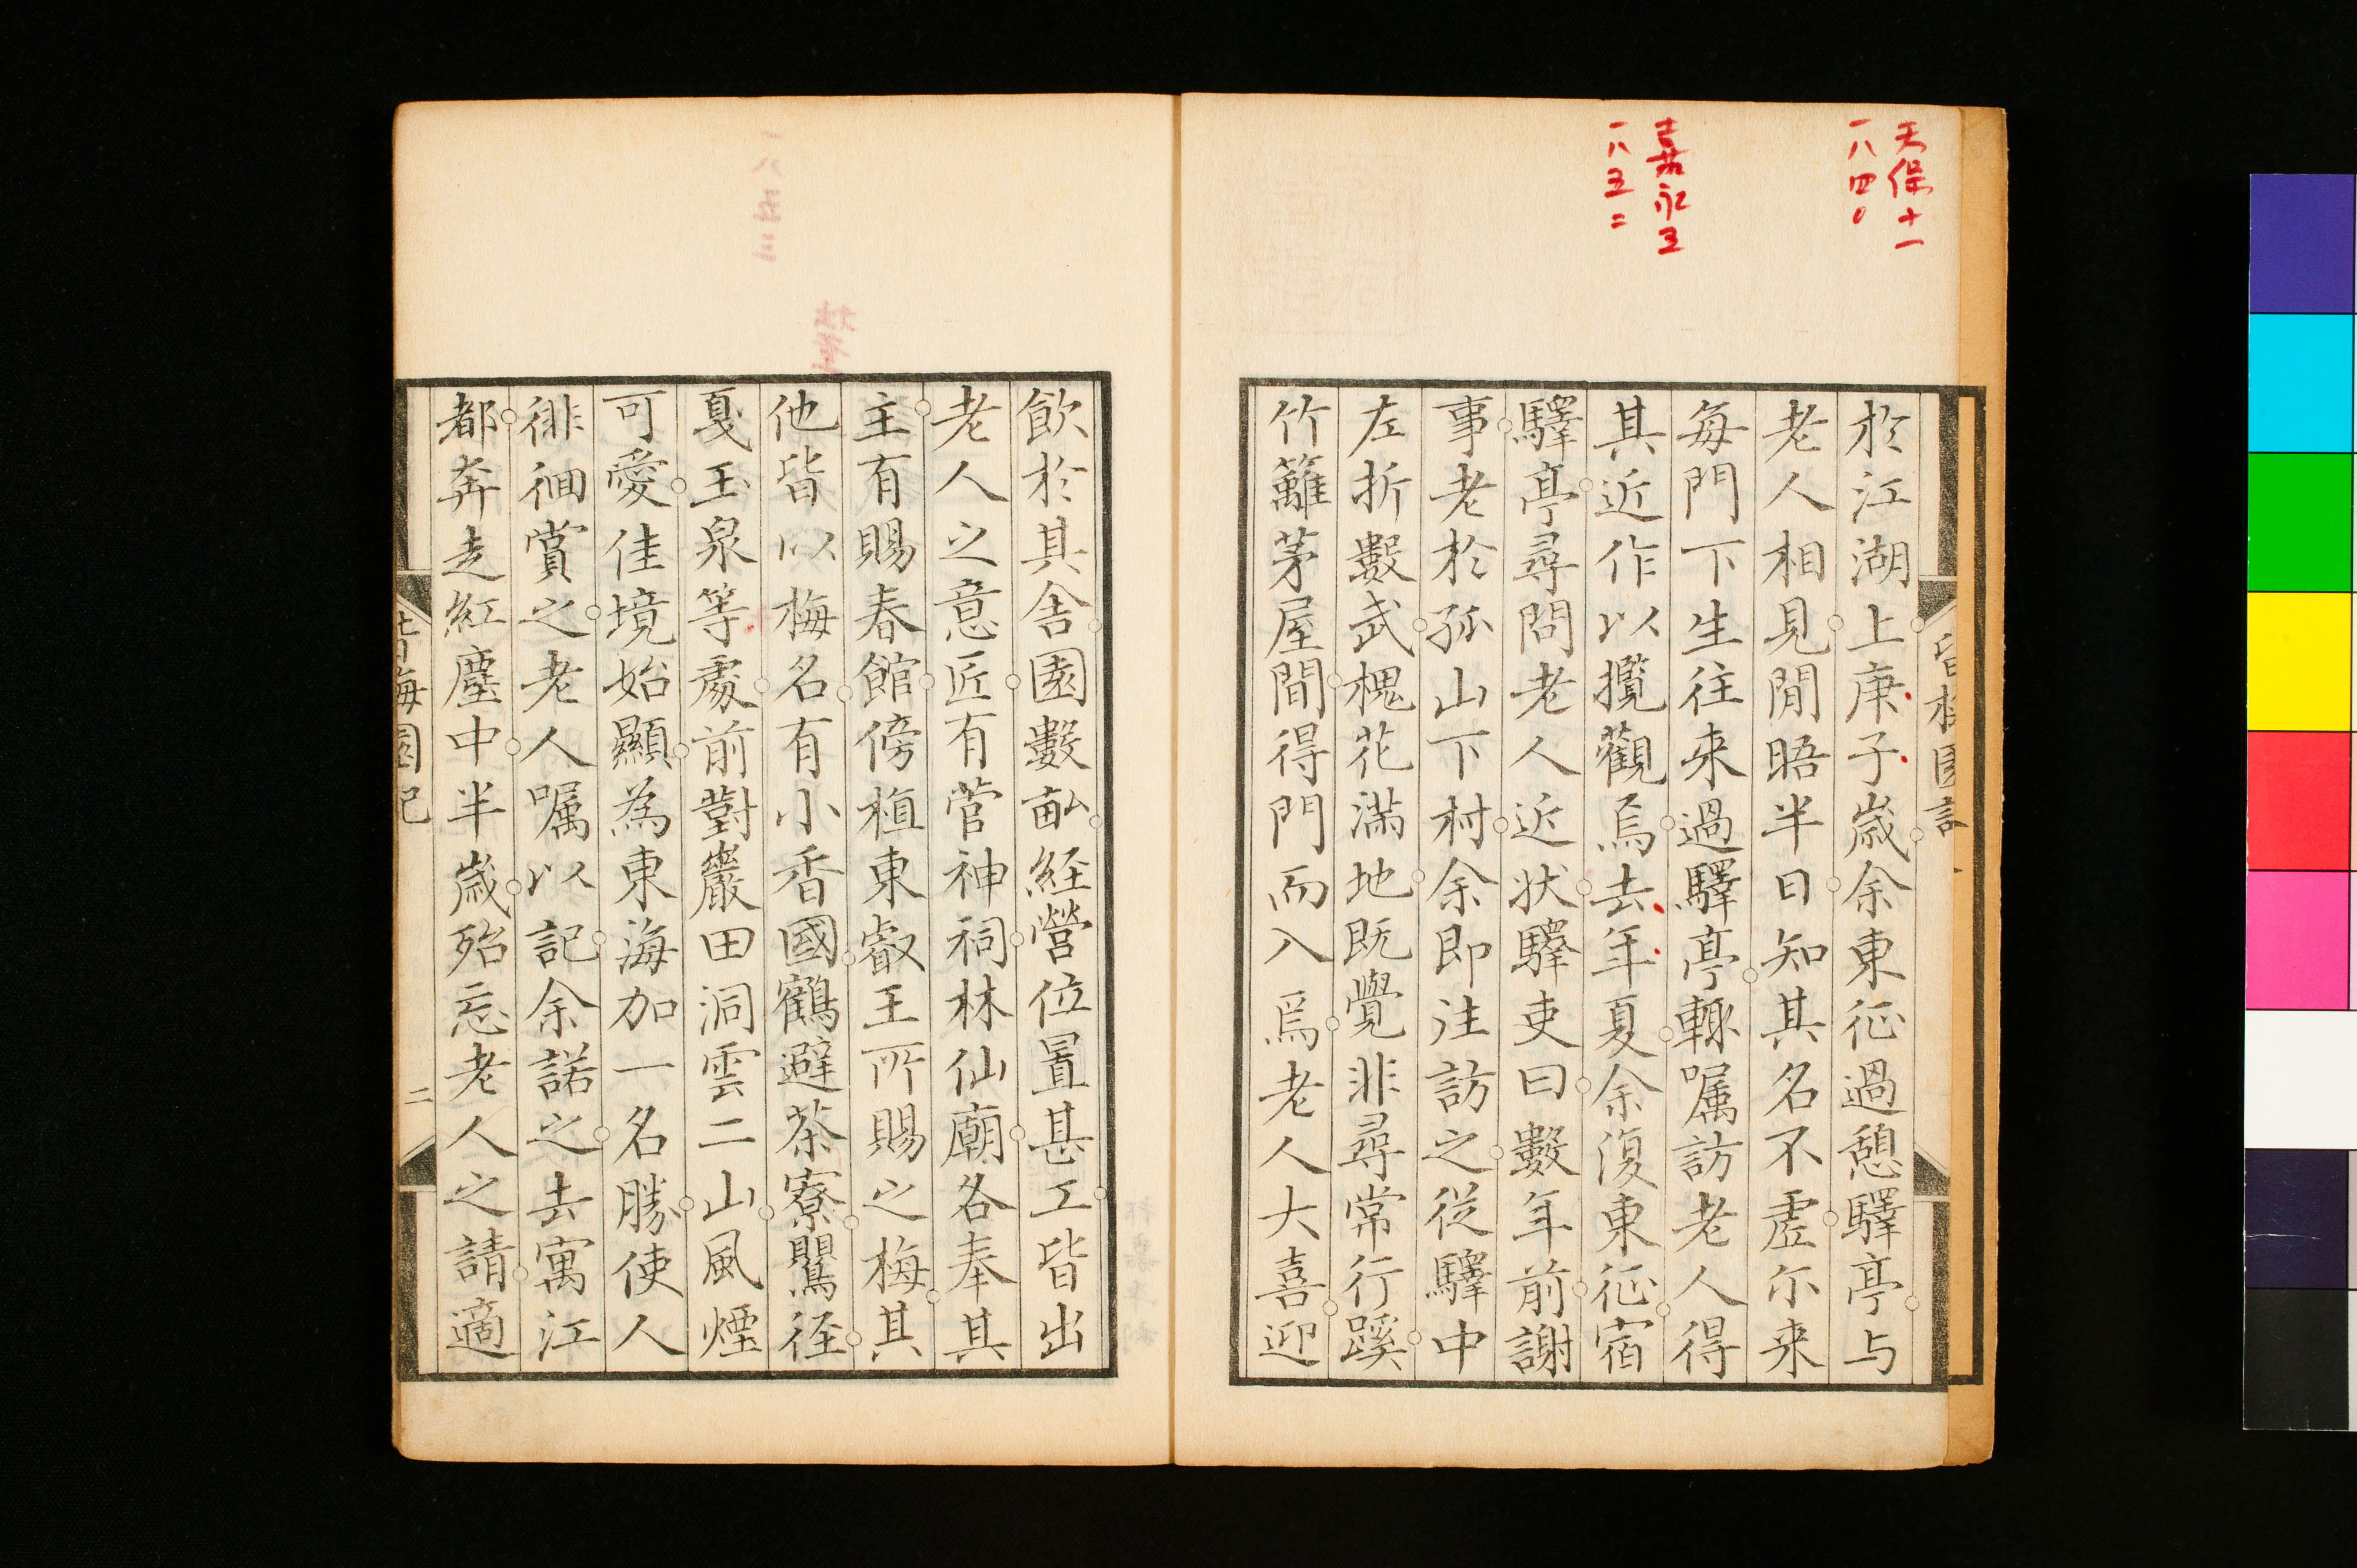 天保十一
一八四〇
嘉永五
一八五二
於江湖上庚子歳余東征過憩驛亭与
老人相見閒晤半日知其名不虚尓来
毎門下生往来過驛亭輙嘱訪老人得
其近作以攬觀焉去年夏余復東征宿
驛亭尋問老人近状驛吏曰數年前謝
事老於孤山下村余即往訪之従驛中
左折數武槐花滿地既覺非尋常行蹊
竹籬茅屋間得門而入焉老人大喜迎
飲於其舎園數畝経營位置甚工皆出
老人之意匠有菅神祠林仙廟各奉其
主有賜春館傍植東叡王所賜之梅其
他皆以梅名有小香國鶴避茶寮鸎径
戛玉泉等處前對巖田洞雲二山風煙
可愛佳境始顯為東海加一名勝使人
徘徊賞之老人嘱以記余諾之去寓江
都奔走紅塵中半歳殆忘老人之請適
皆梅園記
二